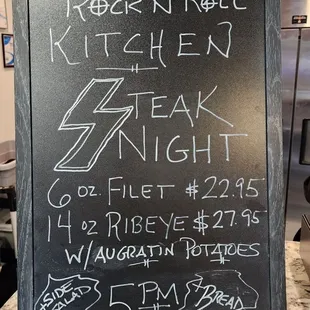 ROCK N ROLL
KITCHEN
STEAK
NIGHT
6 oz. FILET $22.95
14 oz RIBEYE $27.95
W/ AUGRATIN POTATOES
+SIDE
SALAD
5 PM
+BREAD